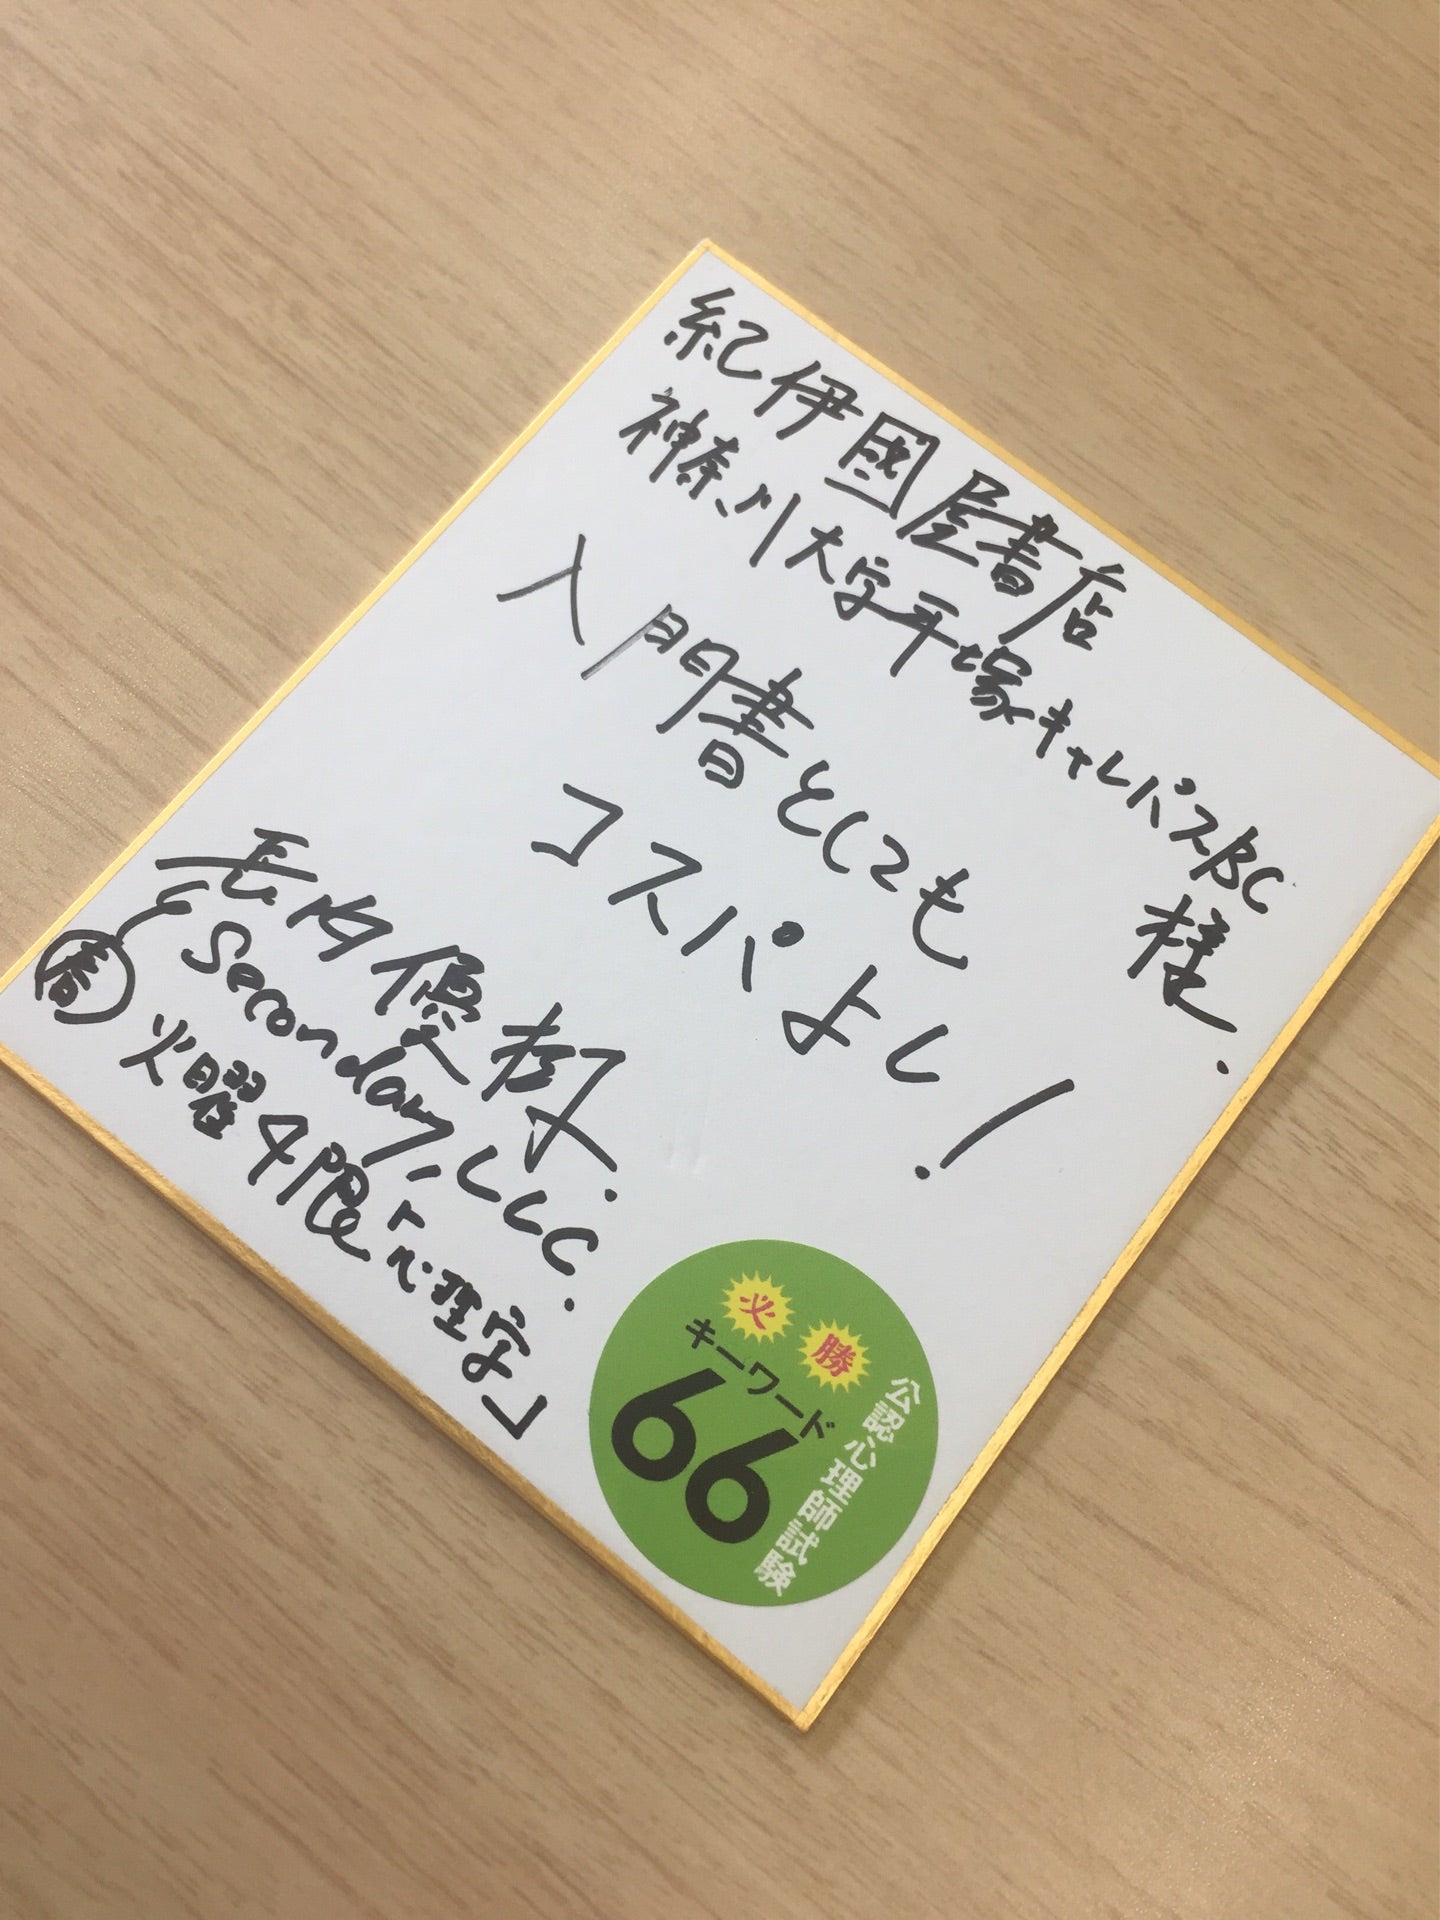 紀伊國屋書店
神奈川大学平塚キャンパスBC
様.
入門書としても
コスパよし!
長内優樹.
(Secondary, LLC.
春 火曜4限「心理学」
必勝
キーワード
66
公認心理師試験